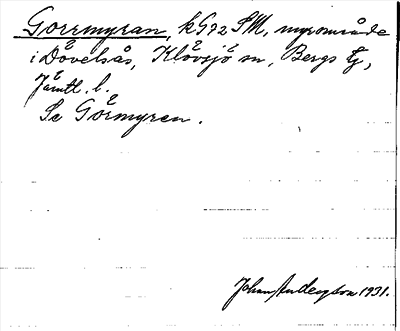 Gorrmyran, k G92 SM, myrområde
i Dövelsås, Klövsjö sn, Bergs tg,
Jämtl. l.
Se Görmyren.
Johan Andersson 1931.